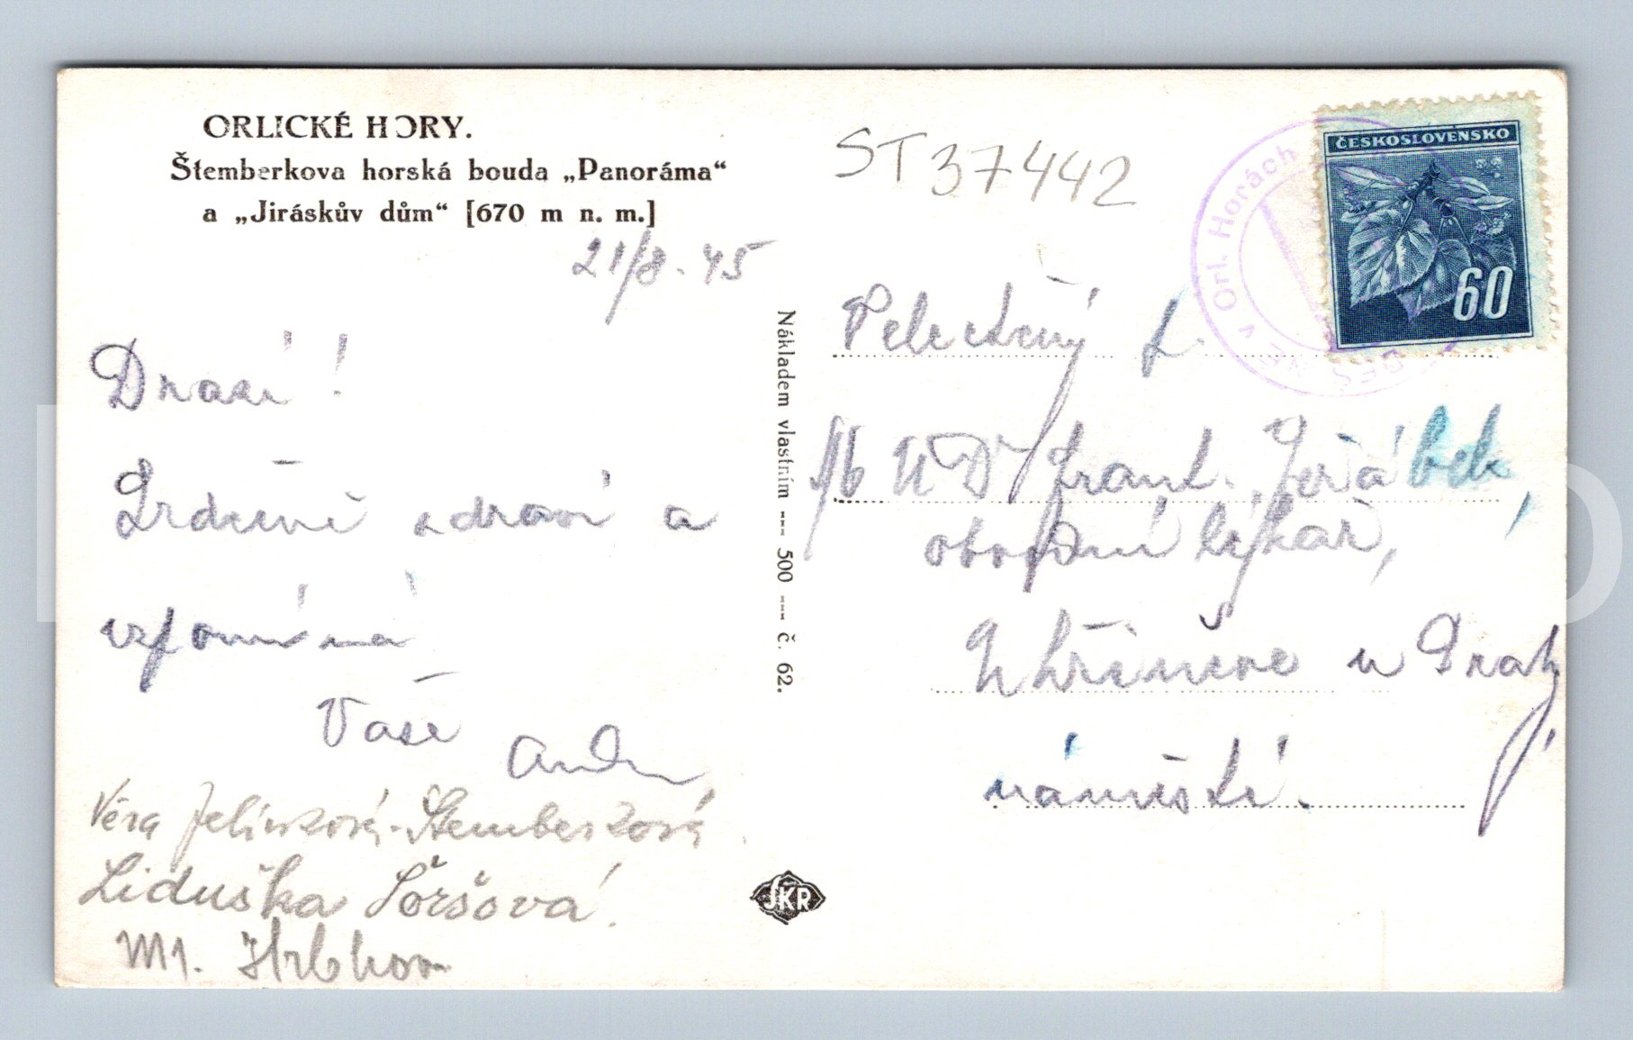 ORLICKÉ HORY.
Štemberkova horská bouda „Panoráma“
a „Jiráskův dům“ [670 m n. m.]
21/8. 45
Drazí!
Srdečně zdraví a
vzpomíná
Vaše
Věra Jelínková-Štemberková
Liduška Šoršová.
M1.
Nákladem vlastním --- 500 --- č. 62.
ŠKR
ST37442
v Orl. Horách
ČESKOSLOVENSKO
60
UD Frant. Jeřábek,
obvodní lékař,
Uhříněves u Prahy
náměstí.